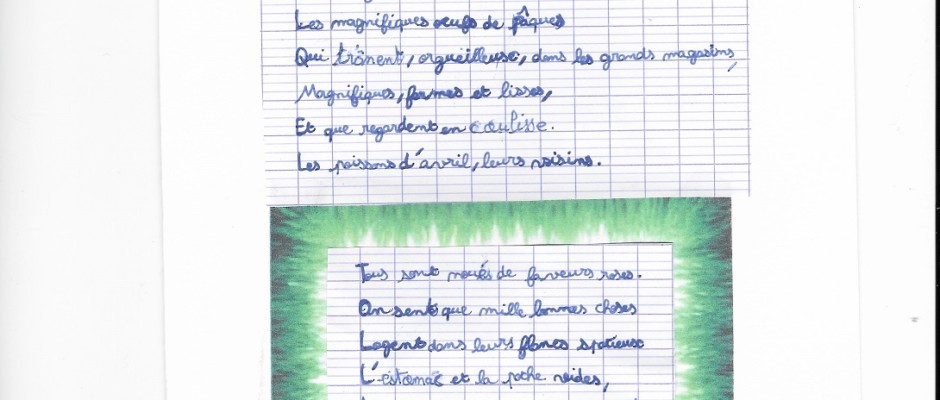 Les magnifiques œufs de pâques
Qui trônent, orgueilleuse, dans les grands magasins,
Magnifiques, formes et lisses,
Et que regardent en coulisse.
Les poissons d'avril, leurs voisins.
Tous sont noués de faveurs roses.
On sent que mille bonnes choses
Logent dans leurs flancs spatieuse
L'estomac et la poche vides,